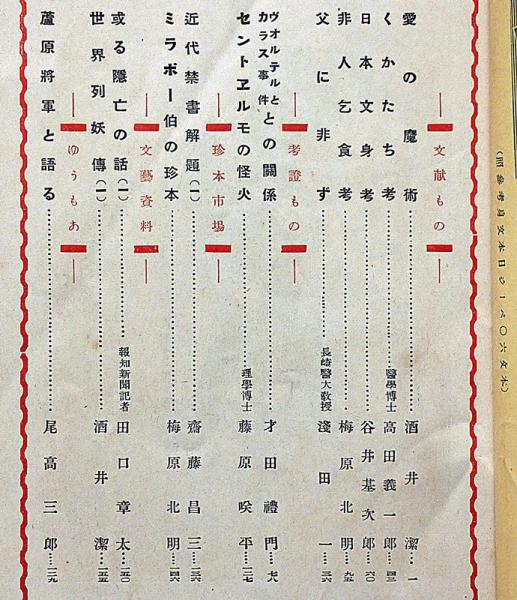 （本文六〇ページ日本文身考參照）
文献もの
愛の魔術……酒井潔…一
くかたち考……醫學博士 高田義一郎…四三
日本文身考……谷井基次郎…六〇
非人乞食考……梅原北明…九五
父に非ず……長崎醫大教授 淺田一…三六
考證もの
ヴオルテルとカラス事件との關係……才田禮門…七六
セントヱルモの怪火……理學博士 藤原咲平…一三七
珍本市場
近代禁書解題（一）……齋藤昌三…一三六
ミラボー伯の珍本……梅原北明…一四六
文藝資料
或る隱亡の話（一）……報知新聞記者 田口章太…一五〇
世界列妖傳（一）……酒井潔…一五五
ゆうもあ
蘆原將軍と語る……尾高三郎…一二九